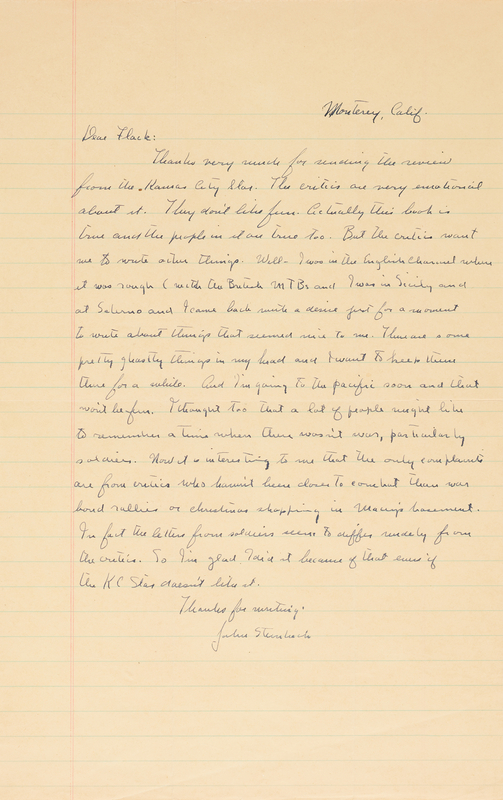 Monterey, Calif.
Dear Flack:
Thanks very much for sending the review
from the Kansas City Star. The critics are very emotional
about it. They don't like fun. Actually this book is
true and the people in it are true too. But the critics want
me to write other things. Well- I was in the English Channel where
it was rough (with the British MTBs and I was in Sicily and
at Salerno and I came back with a desire just for a moment
to write about things that seemed nice to me. There are some
pretty ghastly things in my head and I want to keep them
there for a while. And I'm going to the pacific soon and that
won't be fun. I thought too that a lot of people might like
to remember a time when there wasn't war, particularly
soldiers. Now it is interesting to me that the only complaints
are from critics who haven't been closer to combat than war
bond rallies or christmas shopping in Macy's basement.
In fact the letters from soldiers seem to differ widely from
the critics. So I'm glad I did it because of that even if
the KC Star doesn't like it.
Thanks for writing.
John Steinbeck